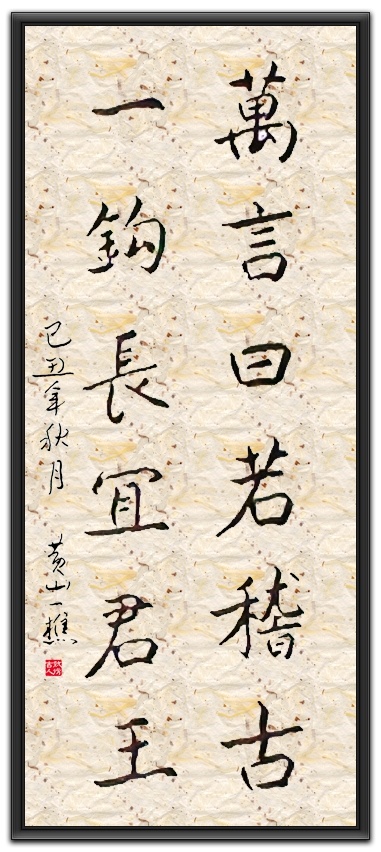 萬言曰若稽古
一鈎長宜君王
己丑年秋月 黄山一樵